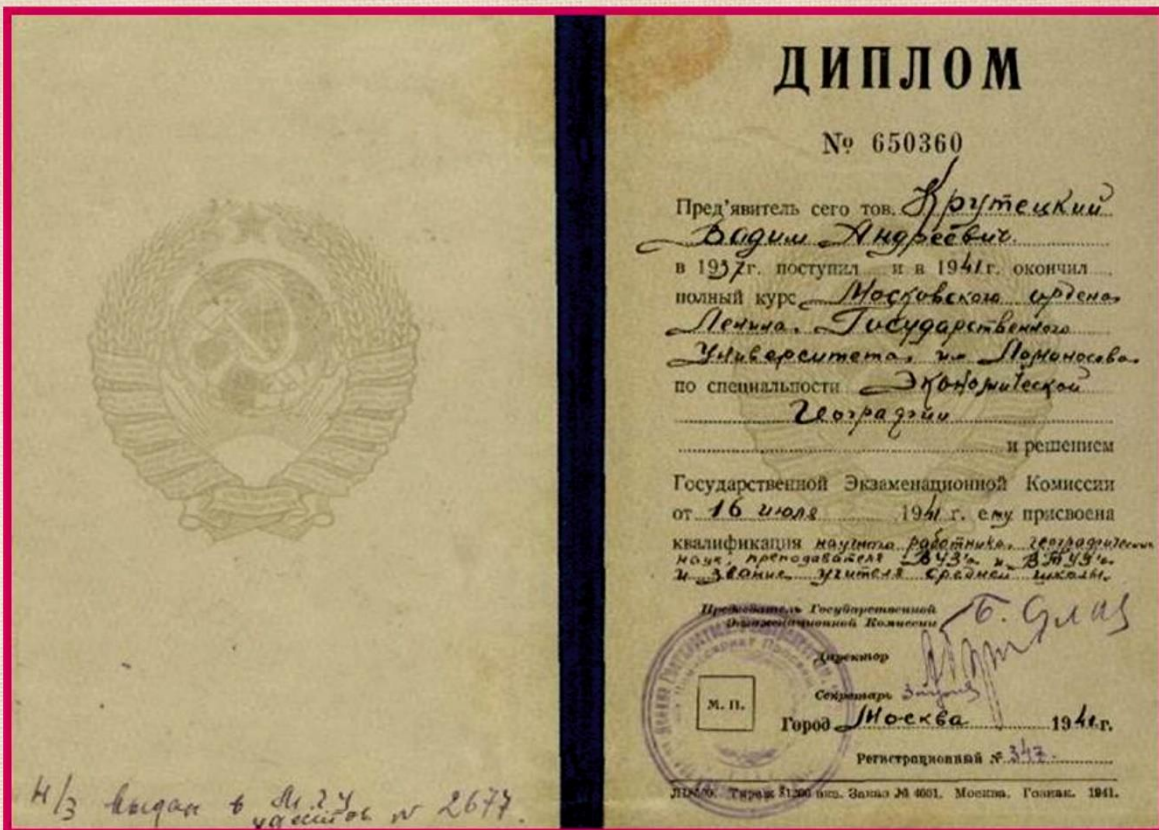 ДИПЛОМ
№ 650360
Пред'явитель сего тов. Крутецкий
Вадим Андреевич.
в 1937г. поступил и в 1941г. окончил
полный курс Московского ордена
Ленина Государственного
Университета, им Ломоносова
по специальности Экономической
Географии
и решением
Государственной Экзаменационной Комиссии
от 16 июля 1941 г. ему присвоена
квалификация научного работника, географических
наук, преподавателя ВУЗ'а и ВТУЗ'а
и звание учителя средней школы.
Председатель Государственной
Экзаменационной Комиссии
Директор
Секретарь
М. П.
Город Москва 1941г.
Регистрационный № 347.
Заказ № 4601. Москва. Гознак. 1941.
Н/З выдан в М.Г.У. № 2677.